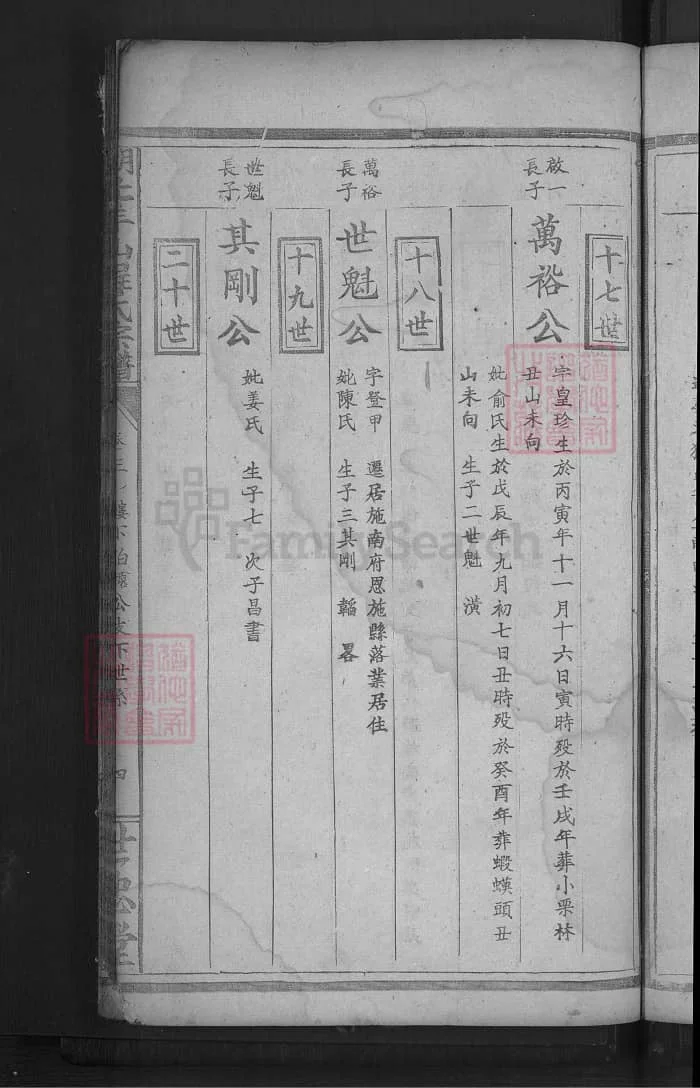 十七世
啟一
長子
萬裕公
字皇珍生於丙寅年十一月十六日寅時歿於壬戌年葬小栗林
丑山未向
妣俞氏生於戊辰年九月初七日丑時歿於癸酉年葬蝦蟆頭丑
山未向 生子二世魁 潢
十八世
萬裕
長子
世魁公
字登甲 遷居施南府恩施縣落業居住
妣陳氏 生子三其剛 韜 畧
十九世
世魁
長子
其剛公
妣姜氏 生子七 次子昌書
二十世
氏宗譜
卷三
公支下世系
四
FamilySearch